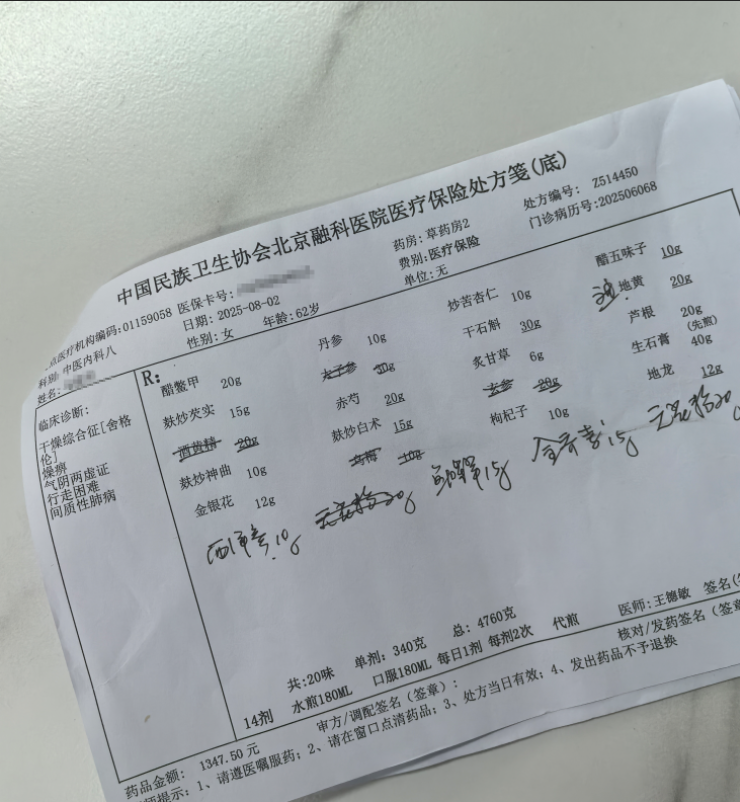 中国民族卫生协会北京融科医院医疗保险处方笺(底)
处方编号: Z514450
点医疗机构编码:01159058 医保卡号:
药房:草药房2
门诊病历号:202506068
科别:中医内科八
日期: 2025-08-02
费别:医疗保险
姓名:
性别:女
年龄:62岁
单位:无
临床诊断:
干燥综合征[舍格
伦]
燥痹
气阴两虚证
行走困难
间质性肺病
R:
醋鳖甲 20g
丹参 10g
炒苦杏仁 10g
醋五味子 10g
麸炒芡实 15g
太子参 30g
干石斛 30g
地黄 20g
酒黄精 20g
赤芍 20g
炙甘草 6g
芦根 20g
(先煎)
麸炒神曲 10g
麸炒白术 15g
玄参 20g
生石膏 40g
金银花 12g
乌梅 10g
枸杞子 10g
地龙 12g
西洋参10g 天花粉20g 15g 15g 天花粉20g
共:20味 单剂: 340克 总: 4760克
医师:王德敏 签名(
14剂 水煎180ML 口服180ML 每日1剂 每剂2次 代煎
核对/发药签名(签章
审方/调配签名(签章):
药品金额: 1347.50 元
师提示: 1、请遵医嘱服药; 2、请在窗口点清药品; 3、处方当日有效; 4、发出药品不予退换